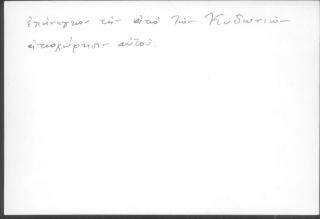 ἐπάναγκον τὴν ἀπὸ τῶν Κυδωνιῶν
ἀποχώρησιν αὐτοῦ.